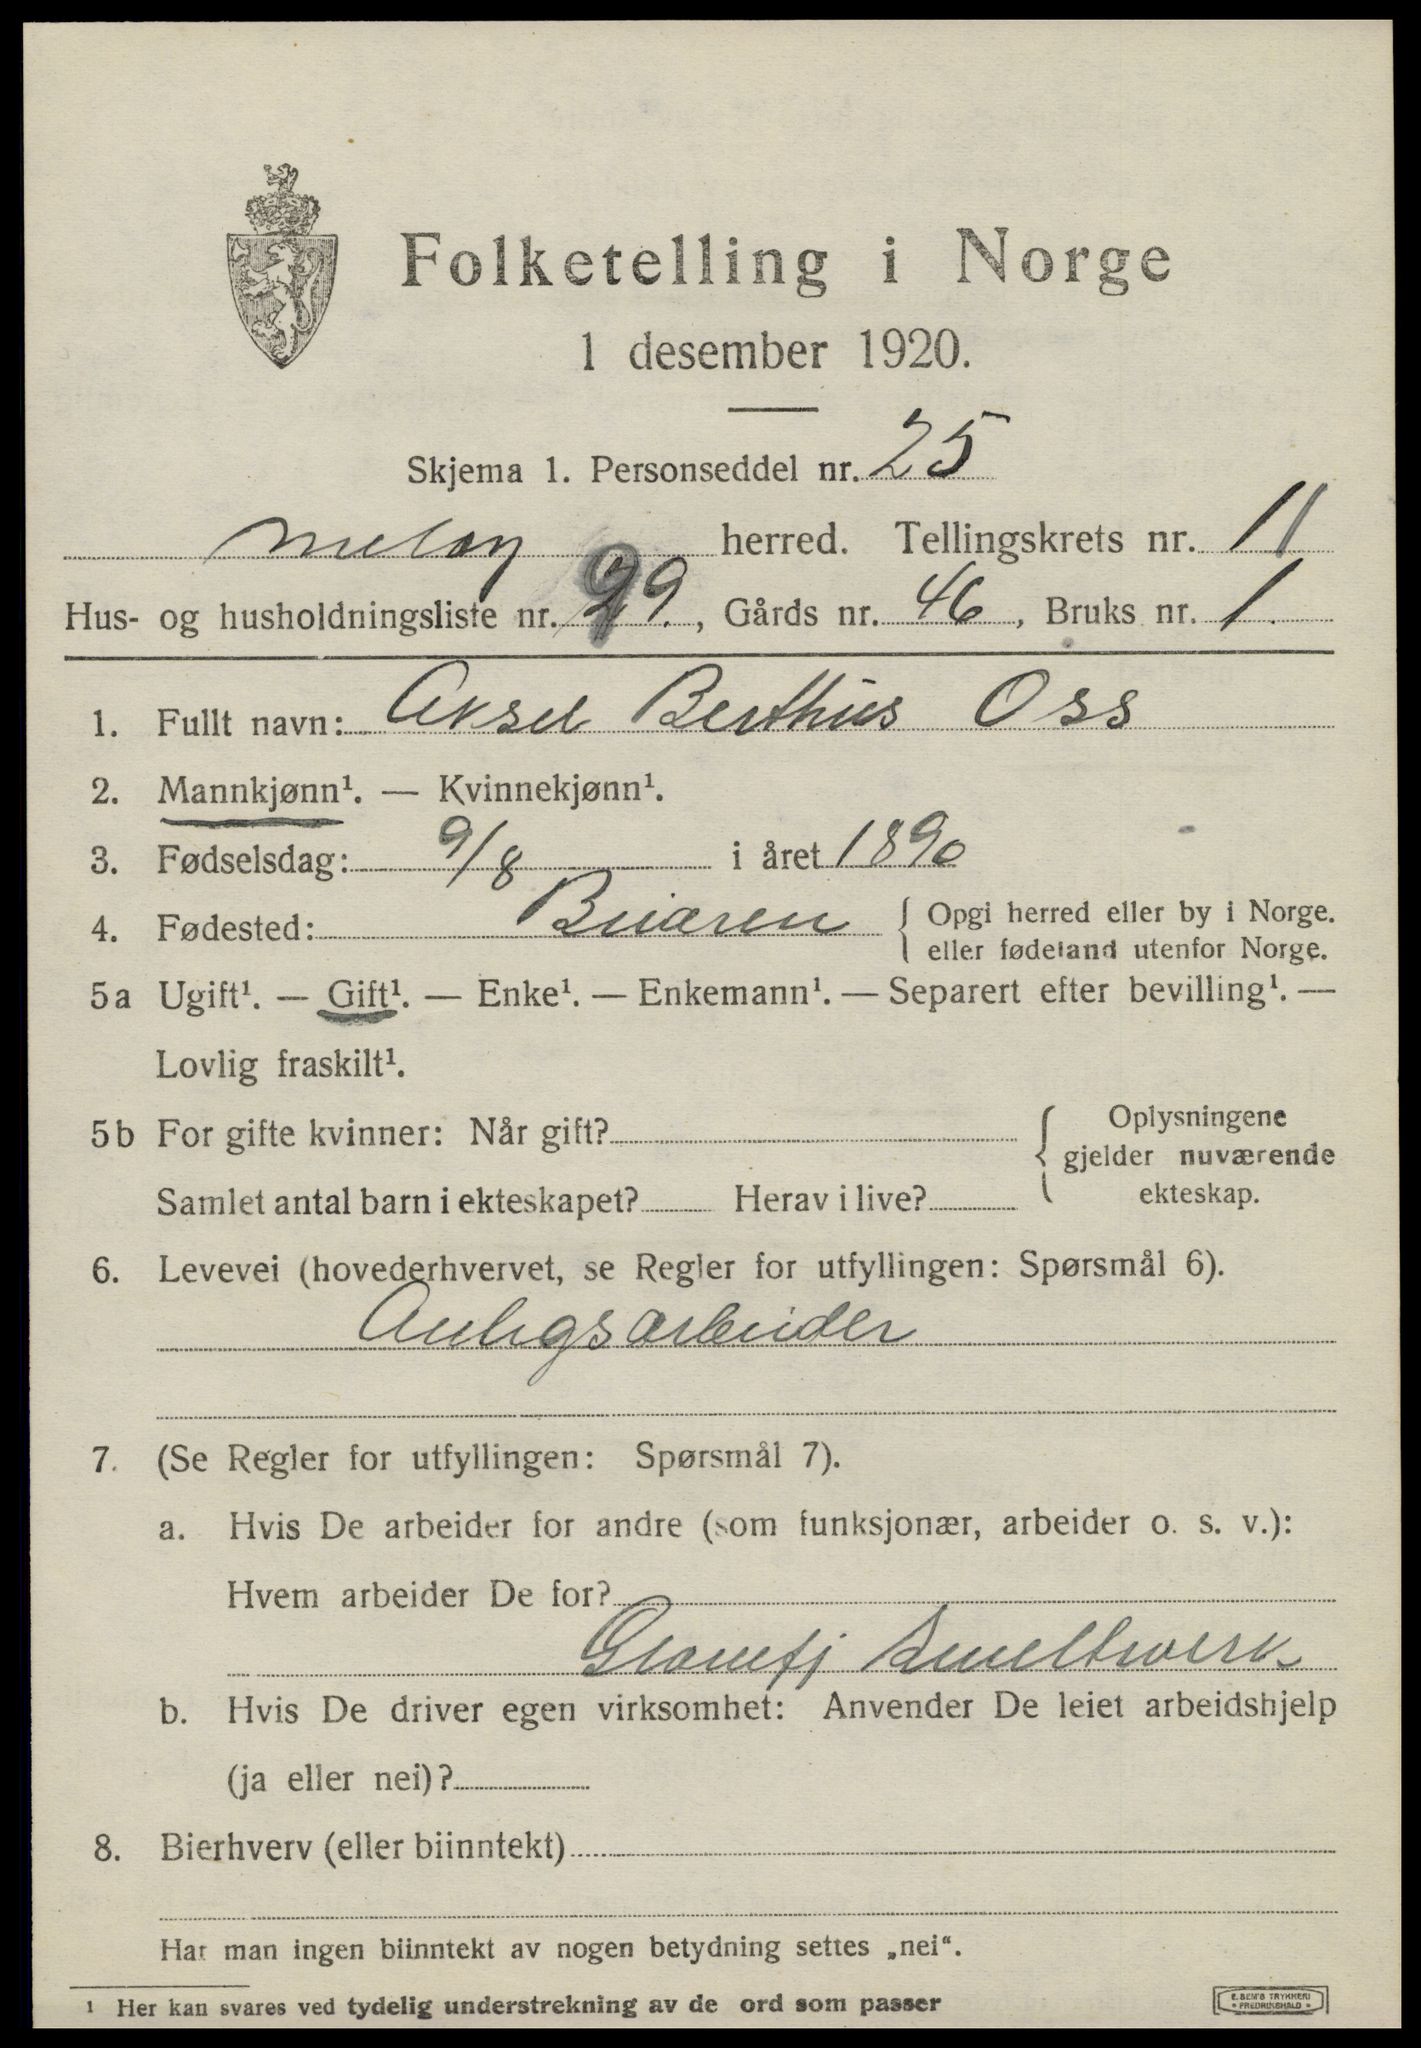 Folketelling i Norge
1 desember 1920.
Skjema 1. Personseddel nr. 25
Meløy herred. Tellingskrets nr. 11
Hus- og husholdningsliste nr. 29., Gårds nr. 46, Bruks nr. 1.
1. Fullt navn: Aksel Berthus Oss
2. Mannkjønn¹. — Kvinnekjønn¹.
3. Fødselsdag: 9/8 i året 1890
4. Fødested: { Opgi herred eller by i Norge.
eller fødeland utenfor Norge.
5a Ugift¹. — Gift¹. — Enke¹. — Enkemann¹. — Separert efter bevilling¹. —
Lovlig fraskilt¹.
5b For gifte kvinner: Når gift? { Oplysningene
gjelder nuværende
ekteskap.
Samlet antal barn i ekteskapet? Herav i live?
6. Levevei (hovederhvervet, se Regler for utfyllingen: Spørsmål 6).
Anlegsarbeider
7. (Se Regler for utfyllingen: Spørsmål 7).
a. Hvis De arbeider for andre (som funksjonær, arbeider o. s. v.):
Hvem arbeider De for?
Glomfj Smeltverk
b. Hvis De driver egen virksomhet: Anvender De leiet arbeidshjelp
(ja eller nei)?
8. Bierhverv (eller biinntekt)
Har man ingen biinntekt av nogen betydning settes „nei“.
¹ Her kan svares ved tydelig understrekning av de ord som passer
E. SEM'S TRYKKERI
• FREDRIKSHALD •